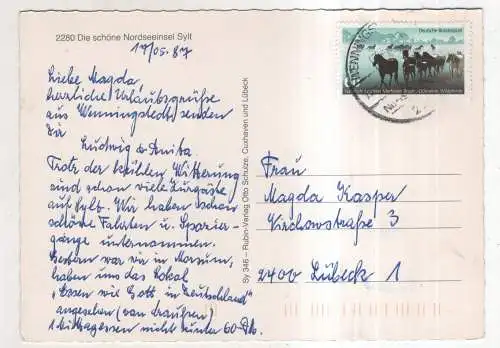 2280 Die schöne Nordseeinsel Sylt
17/05. 87
Liebe Magda,
herzliche Urlaubsgrüße
aus Wenningstedt senden
Dir
Ludwig & Anita.
Trotz der kühlen Witterung
sind schon viele Kurgäste
auf Sylt. Wir haben schon
schöne Fahrten u. Spazier-
gänge unternommen.
Gestern war wir in Morsum,
haben uns das Lokal
„Essen wie Gott in Deutschland"
angesehen (von draußen)
1 Mittagessen nicht unter 60 DM.
Sy 346 – Rubin-Verlag Otto Schulze, Cuxhaven und Lübeck
Deutsche Bundespost
WENNINGST
Frau
Magda Kasper
Virchowstraße 3
2400 Lübeck 1